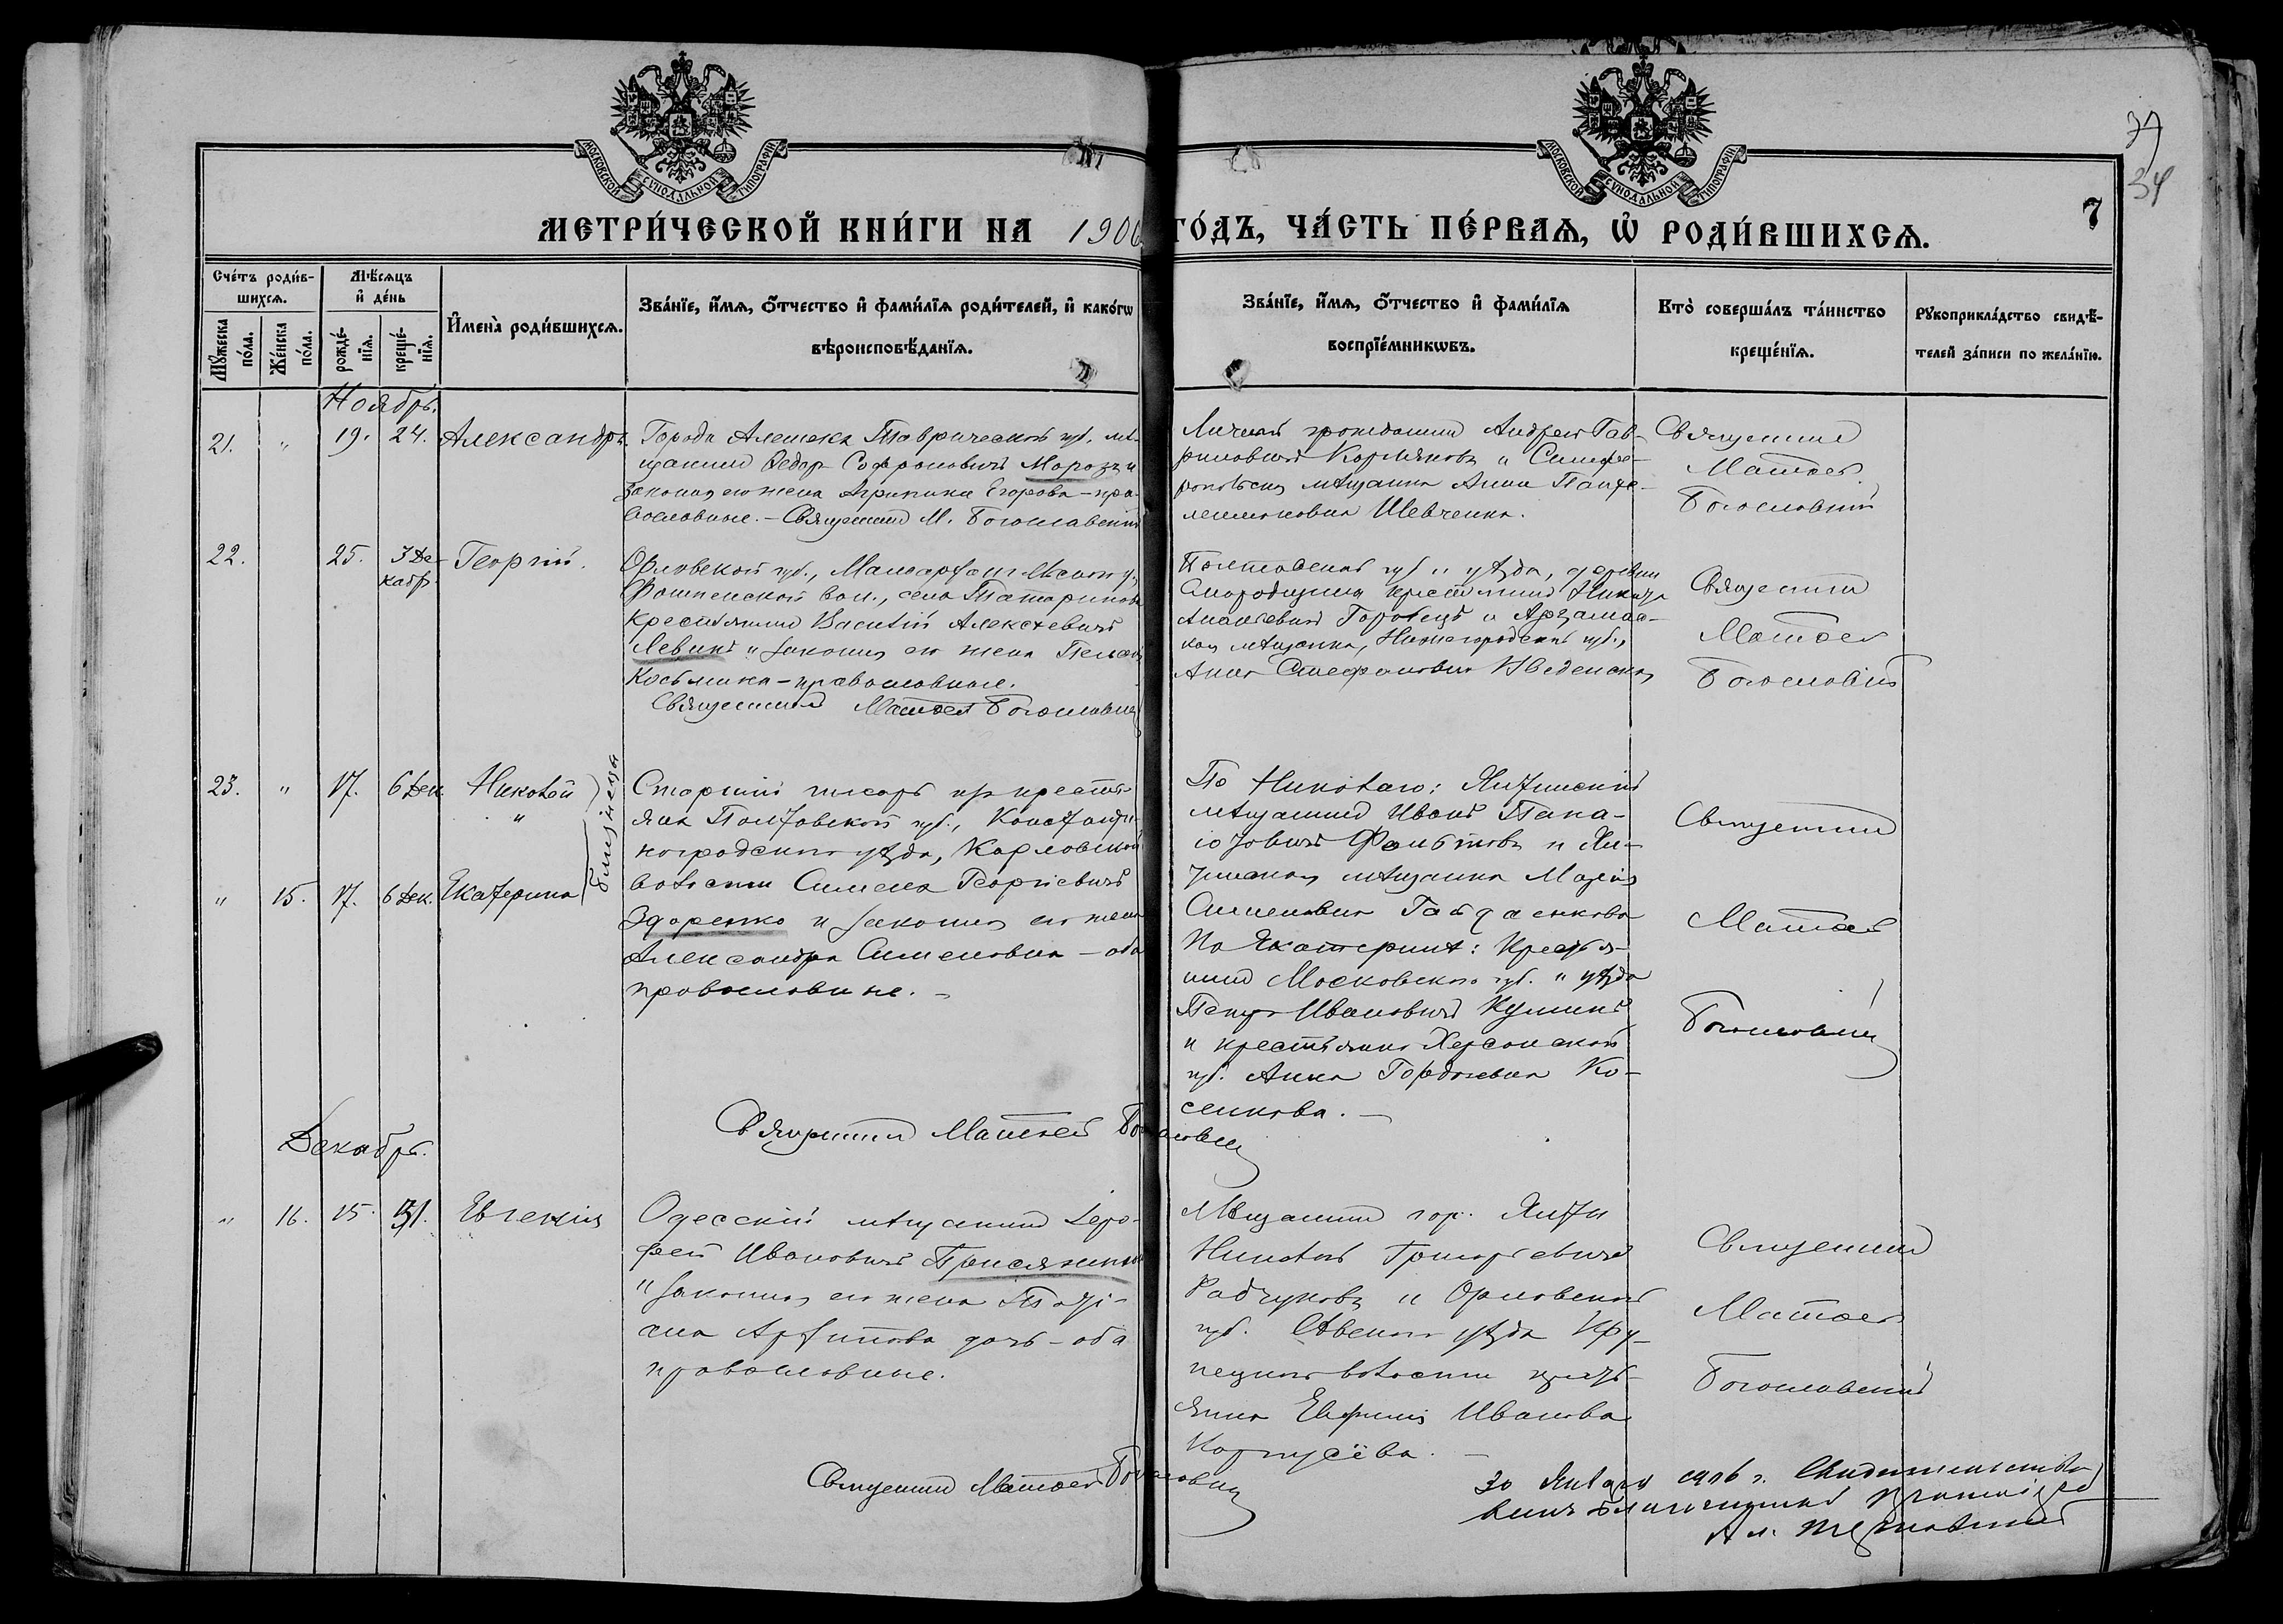 МОСКОВСКОЙ СУНОДАЛЬНОЙ ТИПОГРАФIИ
МОСКОВСКОЙ СУНОДАЛЬНОЙ ТИПОГРАФIИ
34
МЕТРИ́ЧЕСКОЙ КНИ́ГИ НА 1906 ГО́ДЪ, ЧА́СТЬ ПЕ́РВАѦ, Ѡ РОДИ́ВШИХСѦ.
7
Сче́тъ роди́в-
шихсѧ.
Мѣ́сѧцъ
и҆ де́нь
Мꙋ́жеска по́ла.
Же́нска по́ла.
рожде́-нїѧ.
креще́-нїѧ.
И҆мена̀ роди́вшихсѧ.
Зва́нїе, и҆́мѧ, ѻ҆́тчество и҆ фами́лїѧ роди́телей, и҆ како́гѡ
вѣроисповѣ́данїѧ.
Зва́нїе, и҆́мѧ, ѻ҆́тчество и҆ фами́лїѧ
воспрїе́мникѡвъ.
Кто̀ соверша́лъ та́инство
креще́нїѧ.
Рꙋкоприкла́дство свидѣ́-
телей за́писи по жела́нїю.
Ноябрь.
21. " 19. 24. Александръ
Города Алешекъ Таврической губ. мѣ-
щанинъ Ѳедоръ Софроновичъ Морозъ и
законная его жена Агрипина Егорова – пра-
вославные. – Священникъ М. Богославскій
Личный гражданинъ Андрей Гав-
риловичъ Кормяковъ и Симфе-
ропольская мѣщанка Анна Панте-
леимоновна Шевченко.
Священникъ
Матѳей
Богословскій
22. 25. 3 Де-
кабр. Георгій.
Орловской губ., Малоархангельскаго у.,
вол., села Татаринова
крестьянинъ Василій Алексѣевичъ
Левинъ и законная его жена Пелагія
Косьмина – православные.
Священникъ Матѳей Богословскій
Полтавской губ. и уѣзда, деревни
крестьянинъ Никита
Ананьевичъ Горобецъ и Арзамас-
кая мѣщанка, Нижегородской губ.,
Анна Стефановна Введенская
Священникъ
Матѳей
Богословскій
23. " 17. 6 Дек. Николай
"
близнецы
" 15. 17. 6 Дек. Екатерина
Старшій писарь изъ кресть-
янъ Полтавской губ., Константи-
ноградскаго уѣзда, Карловской
волости Симеонъ Георгіевичъ
Здоренко и законная его жена
Александра Симеоновна – оба
православные. –
По Николаю: Ялтинскій
мѣщанинъ Иванъ Пана-
іотовичъ и Ял-
тинская мѣщанка Марія
Симеоновна Гайдаенкова
По Екатеринѣ: Кресть-
нинъ Московской губ. и уѣзда
Петръ Ивановичъ
и крестьянка Херсонской
губ. Анна Гордѣевна Ко-
сенкова. –
Священникъ
Матѳей
Богословскій
Священникъ Матѳей Богословскій
Декабрь.
" 16. 15. 31. Евгенія
Одесскій мѣщанинъ Іеро-
фей Ивановичъ Присяжнюкъ
и законная его жена Таи-
сія дочь – оба
православные.
Мѣщанинъ гор. Ялты
Николай Григорьевичъ
Радчуковъ и Орловской
губ. Сѣвскаго уѣзда Кру-
пецкой волости кресть-
янка Евфимія Иванова
Священникъ
Матѳей
Богословскій
Священникъ Матѳей Богословскій
30 Января 1906 г. Свидетельство
валъ благочинный Протоіерей
Ал. Терновскій